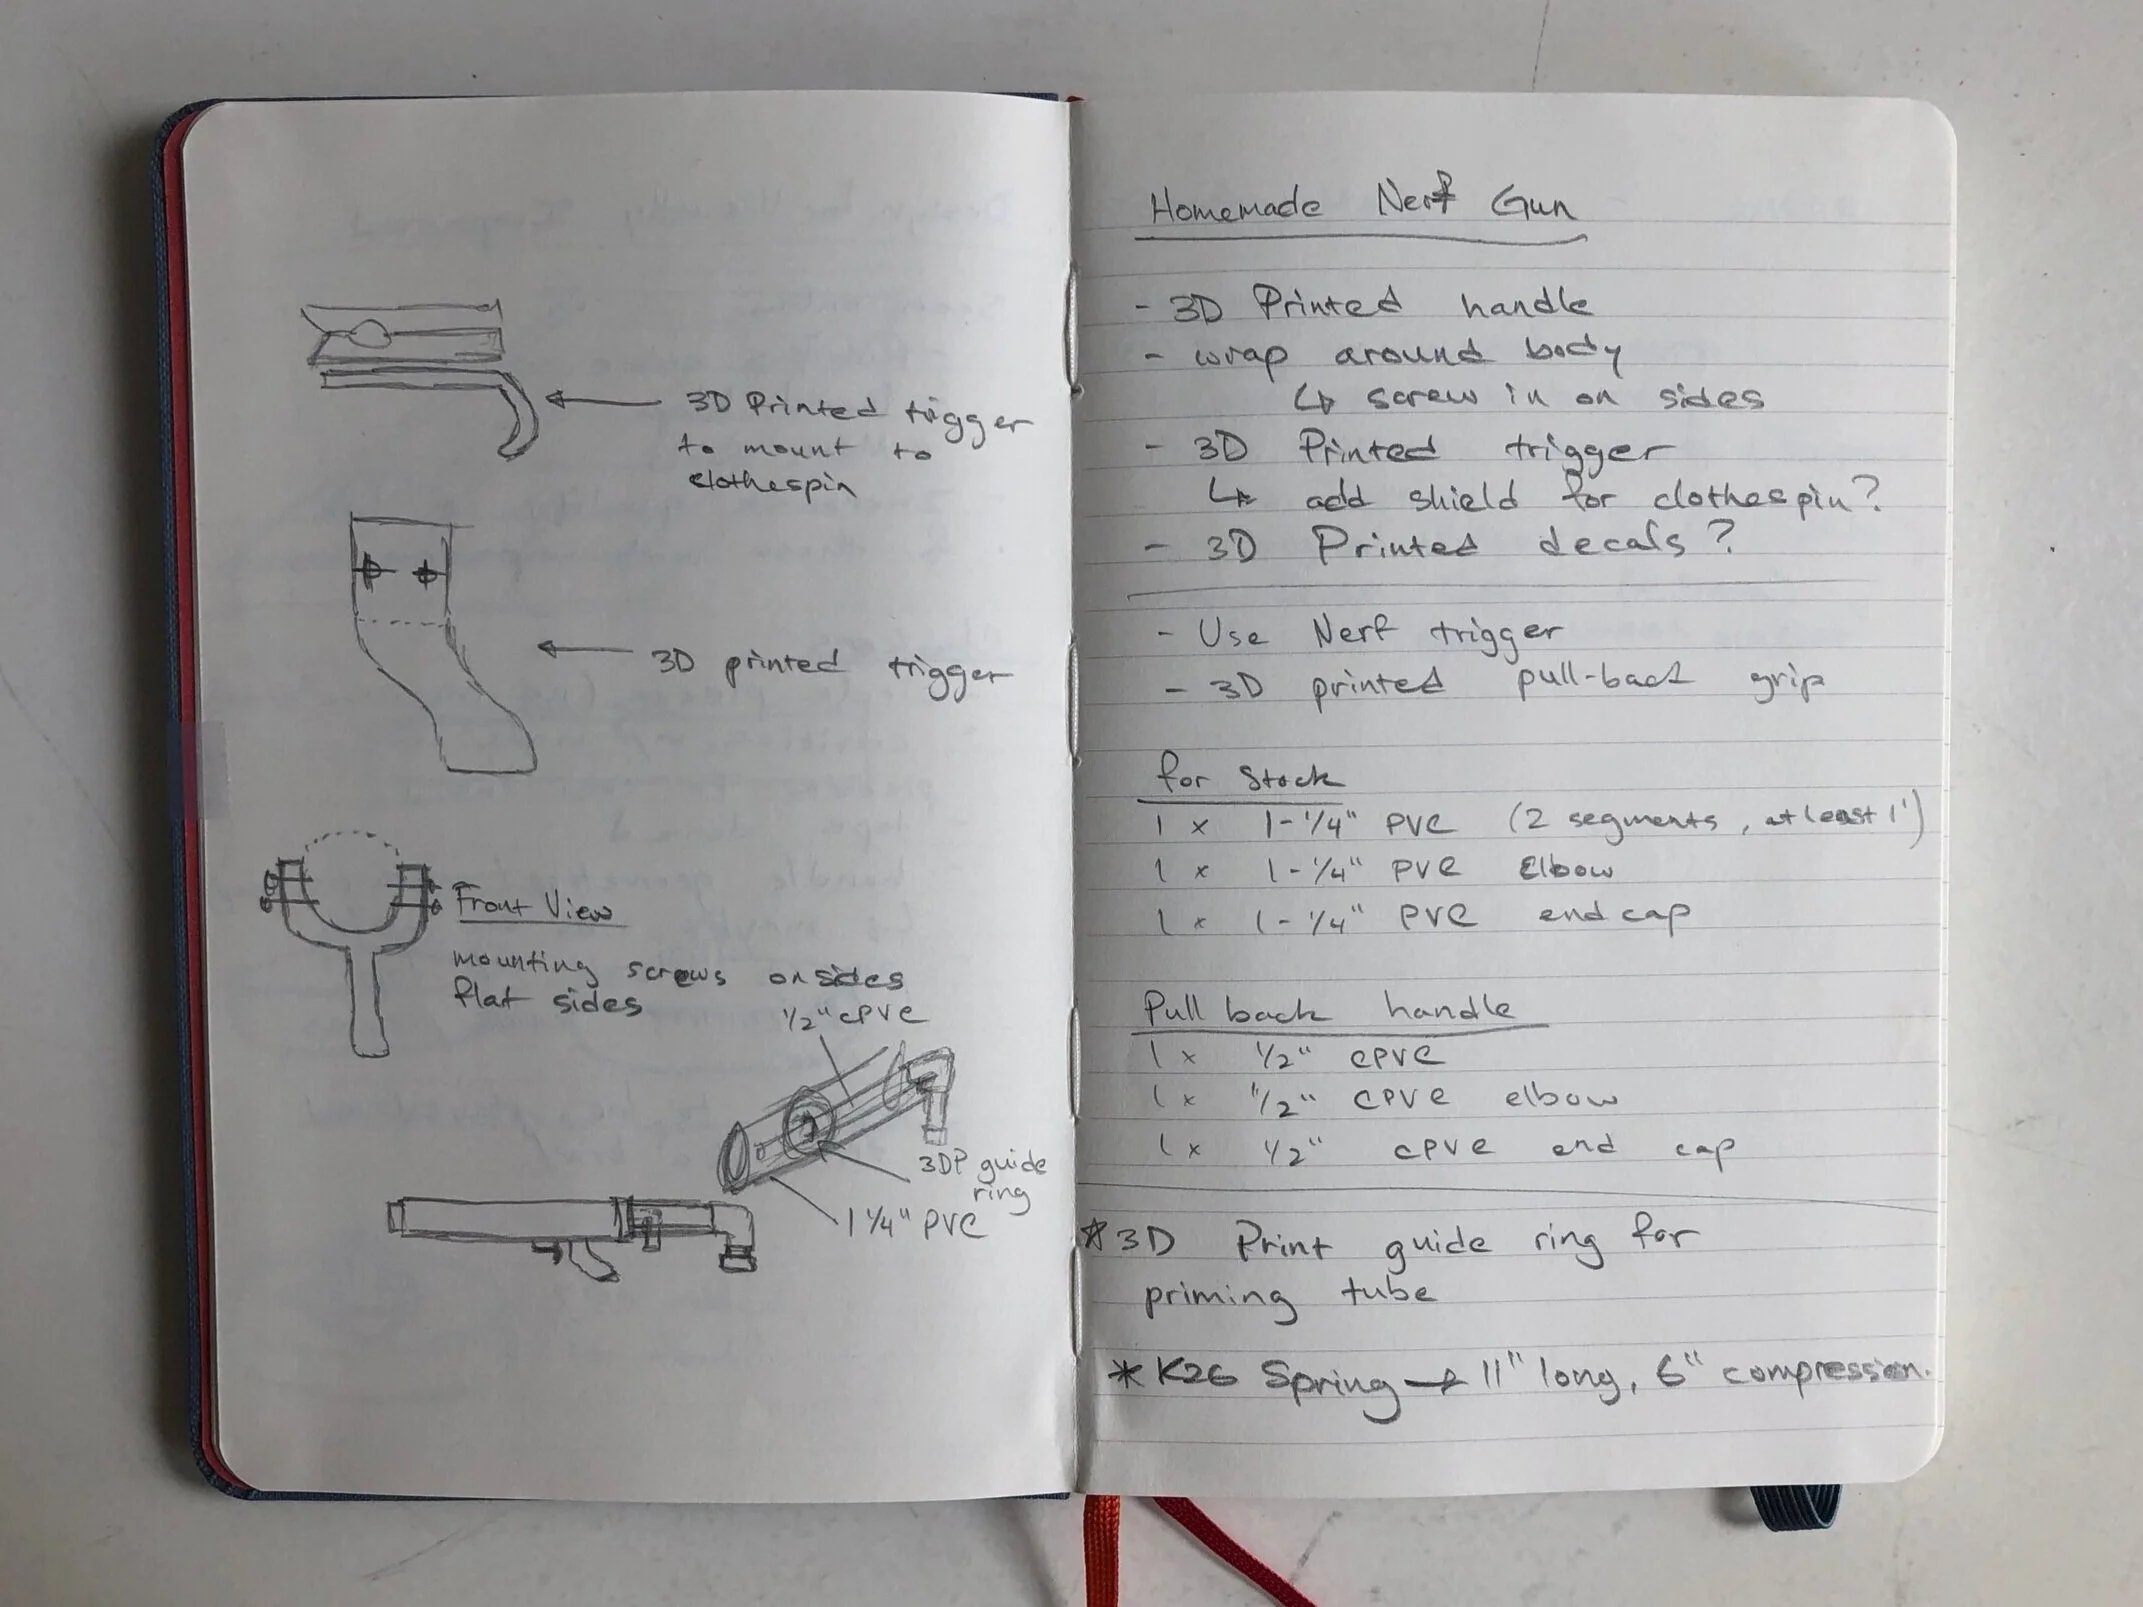 3D Printed trigger
to mount to
clothespin
3D printed trigger
Front View
mounting screws on sides
flat sides
1/2" CPVC
3DP guide
ring
1 1/4" PVC
Homemade Nerf Gun
- 3D Printed handle
- wrap around body
↳ screw in on sides
- 3D Printed trigger
↳ add shield for clothespin?
- 3D Printed decals?
- Use Nerf trigger
- 3D printed pull-back grip
for Stock
1 x 1-1/4" PVC (2 segments, at least 1')
1 x 1-1/4" PVC Elbow
1 x 1-1/4" PVC end cap
Pull back handle
1 x 1/2" CPVC
1 x 1/2" CPVC elbow
1 x 1/2" CPVC end cap
*3D Print guide ring for
priming tube
* K26 Spring → 11" long, 6" compression.